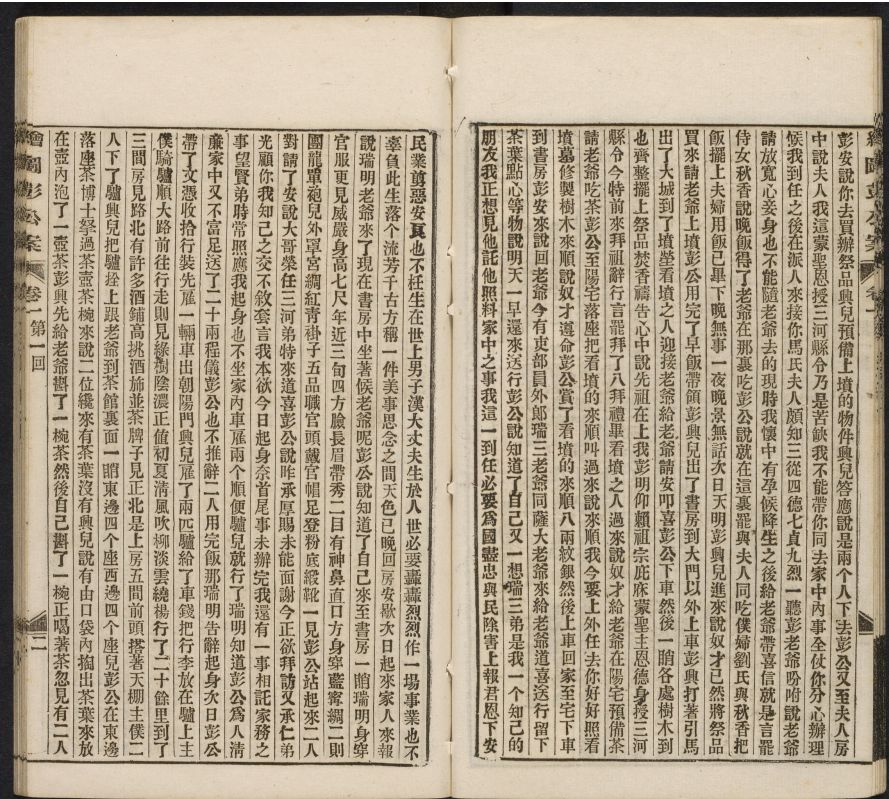 彭安說你去買辦祭品興兒預備上墳的物件興兒答應說是兩个人下去彭公又至夫人房
中說夫人我這蒙聖恩授三河縣令乃是苦缺我不能帶你同去家中內事全仗你分心辦理
候我到任之後在派人來接你馬氏夫人頗知三從四德七貞九烈一聽彭老爺吩咐說老爺
請放寬心妾身也不能隨老爺去的現時我懷中有孕候降生之後給老爺帶喜信就是言罷
侍女秋香說晚飯得了老爺在那裏吃彭公說就在這裏罷與夫人同吃僕婦劉氏與秋香把
飯擺上夫婦用飯已畢下晚無事一夜晚景無話次日天明彭興兒進來說奴才已然將祭品
買來請老爺上墳彭公用完了早飯帶領彭興兒出了書房到大門以外上車彭興打著引馬
出了大城到了墳塋看墳之人迎接老爺給老爺請安叩喜彭公下車然後一瞧各處樹木到
也齊整擺上祭品焚香禱告心中說先祖在上我彭明仰賴祖宗庇庥蒙聖主恩德身授三河
縣令今特前來拜祖辭行言罷拜了八拜禮畢看墳之人過來說奴才給老爺在陽宅預備茶
請老爺吃茶彭公至陽宅落座把看墳的來順叫過來說來順我今要上外任去你好好照看
墳墓修製樹木來順說奴才遵命彭公賞了看墳的來順八兩紋銀然後上車回家至宅下車
到書房彭安來說回老爺今有吏部員外郎瑞三老爺同薩大老爺來給老爺道喜送行留下
茶葉點心等物說明天一早還來送行彭公說知道了自己又一想瑞三弟是我一个知己的
朋友我正想見他託他照料家中之事我這一到任必要爲國盡忠與民除害上報君恩下安
繪圖彭公案
卷一
第一回
二
民業剪惡安良也不枉生在世上男子漢大丈夫生於人世必要轟轟烈烈作一場事業也不
辜負此生落个流芳千古方稱一件美事思念之間天色已晚回房安歇次日起來家人來報
說瑞明老爺來了現在書房中坐著候老爺呢彭公說知道了自己來至書房一瞧瑞明身穿
官服更見威嚴身高七尺年近三旬四方臉長眉帶秀二目有神鼻直口方身穿藍寧綢二則
團龍單袍兒外罩宮綢紅青褂子五品職官頭戴官帽足登粉底緞靴一見彭公站起來二人
對請了安說大哥榮任三河弟特來道喜彭公說昨承厚賜未能面謝今正欲拜訪又承仁弟
光顧你我知己之交不敘套言我本欲今日起身奈首尾事未辦完我還有一事相託家務之
事望賢弟時常照應我起身也不坐家內車雇兩个順便驢兒就行了瑞明知道彭公爲人清
廉家中又不富足送了二十兩程儀彭公也不推辭二人用完飯那瑞明告辭起身次日彭公
帶了文憑收拾行裝先雇一輛車出朝陽門興兒雇了兩匹驢給了車錢把行李放在驢上主
僕騎驢順大路前往行走則見綠樹陰濃正值初夏清風吹柳淡雲繞楊行了二十餘里到了
三間房見路北有許多酒鋪高挑酒旆並茶牌子見正北是上房五間前頭搭著天棚主僕二
人下了驢興兒把驢拴上跟老爺到茶館裏面一瞧東邊四个座西邊四个座兒彭公在東邊
落座茶博士拏過茶壺茶椀來說二位纔來有茶葉沒有興兒說有由口袋內掏出茶葉來放
在壺內泡了一壺茶彭興先給老爺斟了一椀茶然後自己斟了一椀正喝著茶忽見有二人